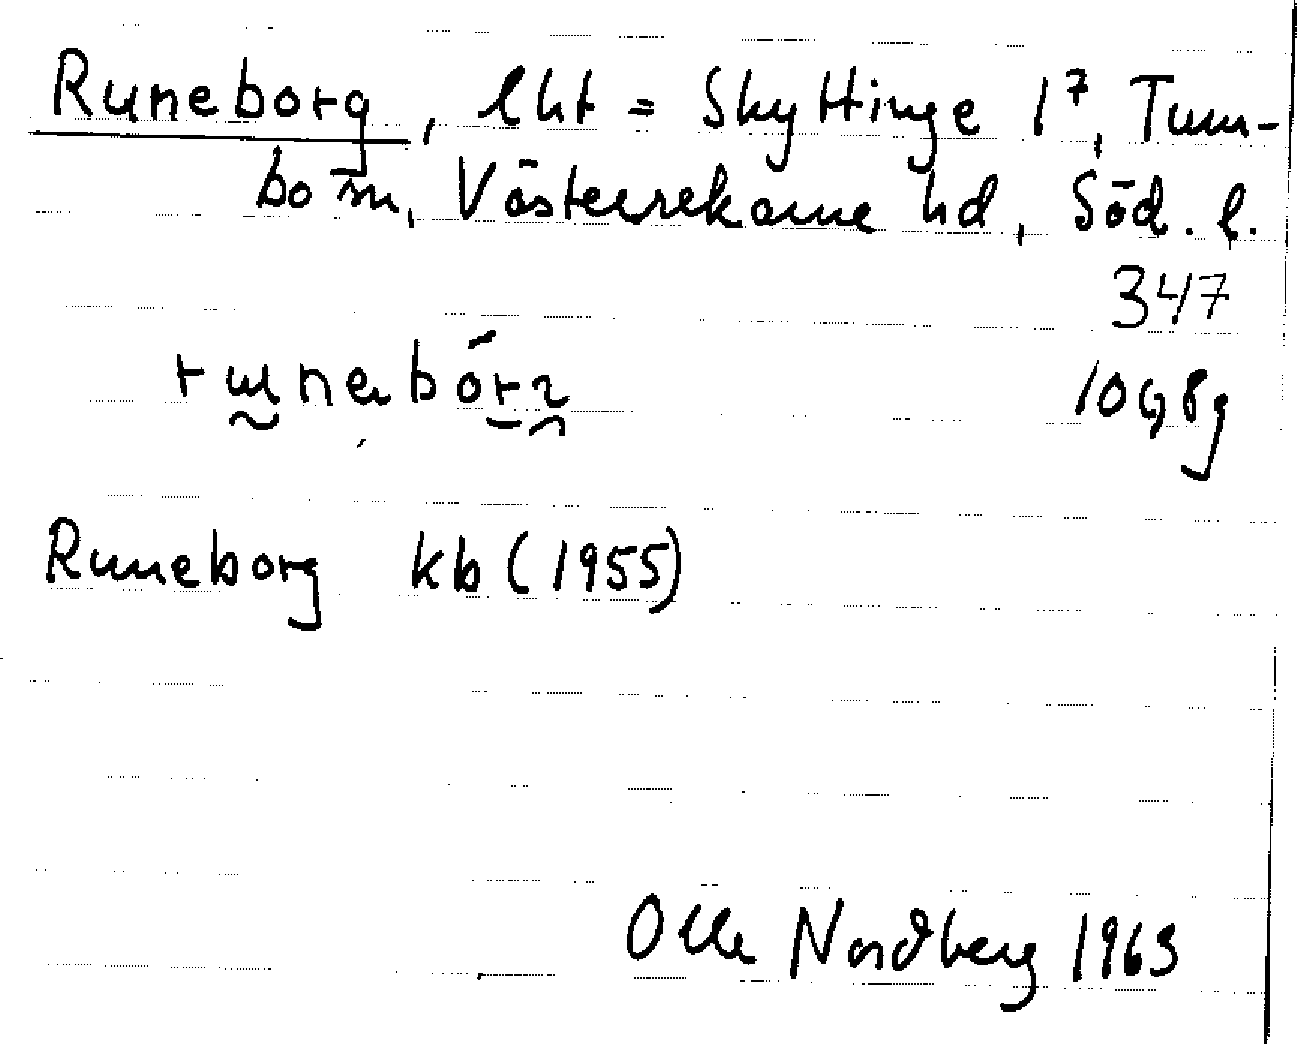 Runeborg, lht = Skyttinge 1⁷, Tum-
bo sn, Västerrekarne hd, Söd. l.
347
10G8g
Runeborg kb (1955)
Olle Nordberg 1963